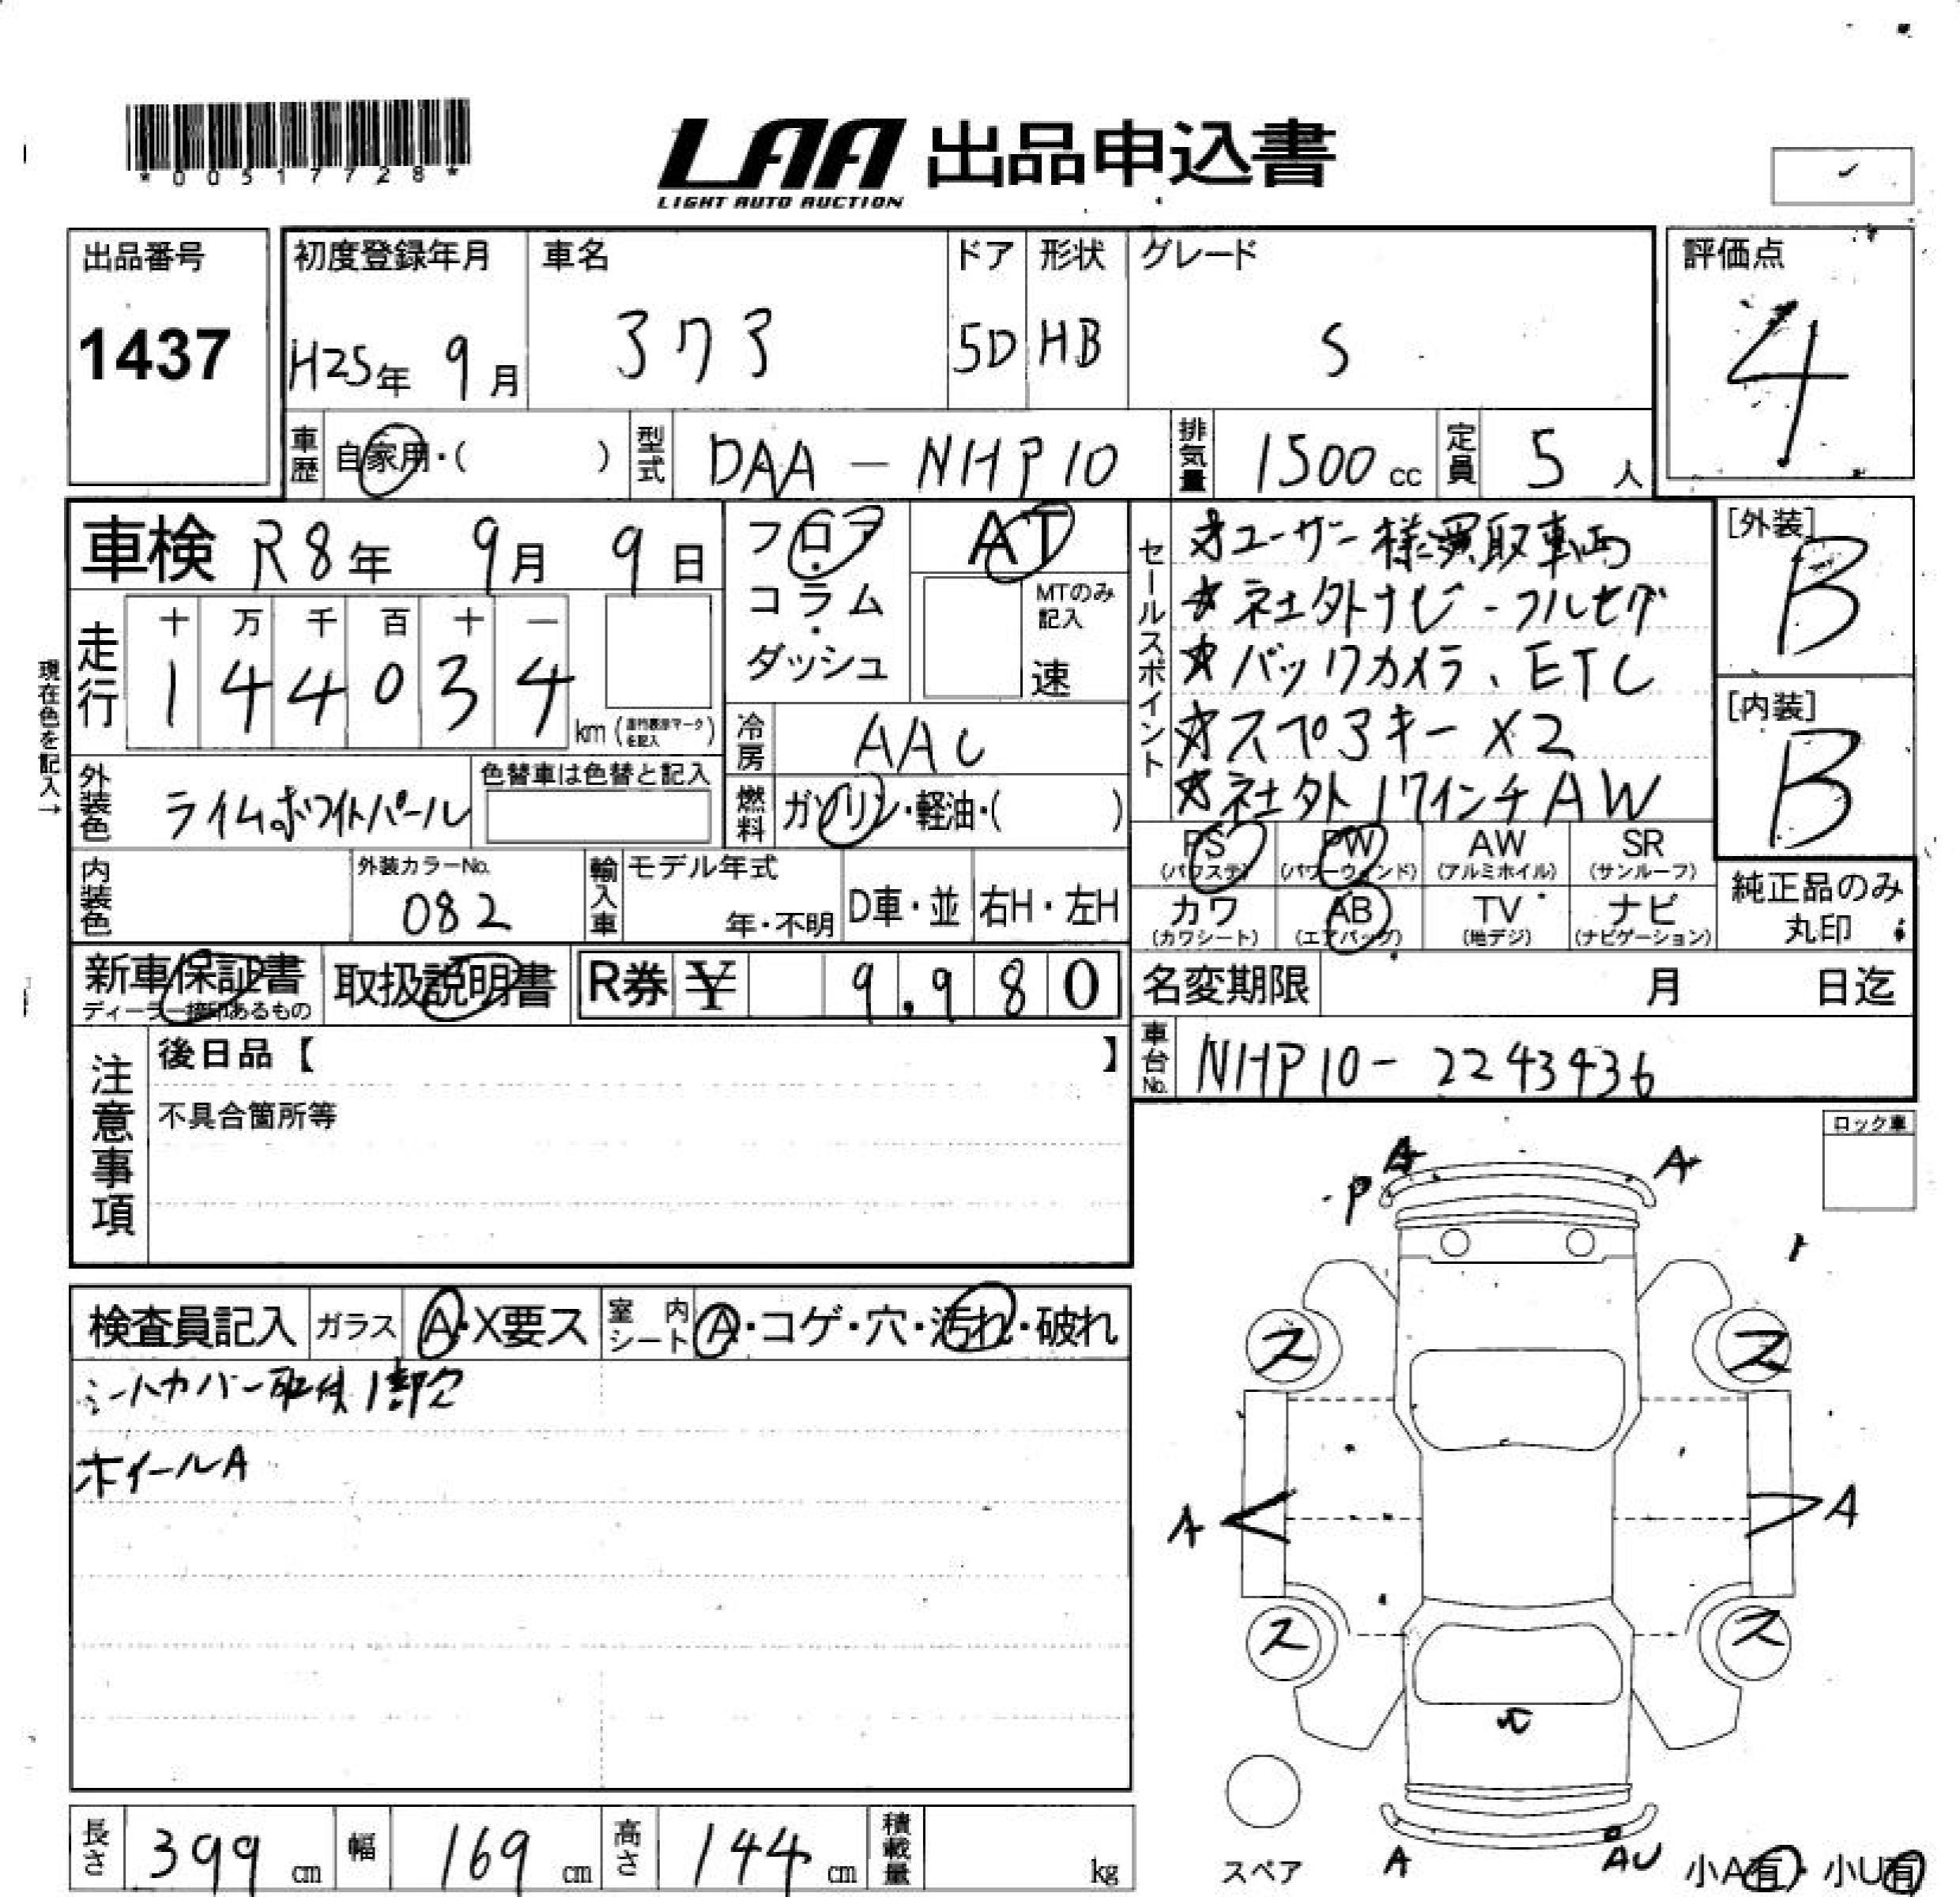 *00517728*
LAA 出品申込書
LIGHT AUTO AUCTION
出品番号 初度登録年月 車名 ドア 形状 グレード 評価点
1437 H25年 9月 アクア 5D HB S 4
車歴 自家用・( ) 型式 DAA-NHP10 排気量 1500cc 定員 5人
車検 R8年 9月 9日 フロア・コラム・ダッシュ AT MTのみ記入 速
セールスポイント
☆ユーザー様買取車両
☆社外ナビ-フルセグ
☆バックカメラ、ETC
☆スペアキーX2
☆社外17インチAW
[外装] B
[内装] B
現在色を記入→
走行 十 万 千 百 十 一
1 4 4 0 3 4 km
冷房 AAC
外装色 ライムホワイトパール 色替車は色替と記入 燃料 ガソリン・軽油・( )
PS (パワステ) PW (パワーウィンド) AW (アルミホイル) SR (サンルーフ)
内装色 外装カラーNo. 082 輸入車 モデル年式 年・不明 D車・並 右H・左H
カワ (カワシート) AB (エアバッグ) TV (地デジ) ナビ (ナビゲーション) 純正品のみ丸印
新車保証書 ディーラー捺印あるもの 取扱説明書 R券 ¥ 9,980 名変期限 月 日迄
注意事項 後日品【 】 車台No. NHP10-2243436
不具合箇所等
ロック車
A A
P
検査員記入 ガラス A・X要ス 室内シート A・コゲ・穴・汚れ・破れ
シートカバー取付1部欠
ホイールA
ス ス
A A
ス ス
長さ 399cm 幅 169cm 高さ 144cm 積載量 kg
スペア A AU 小A有・小U有